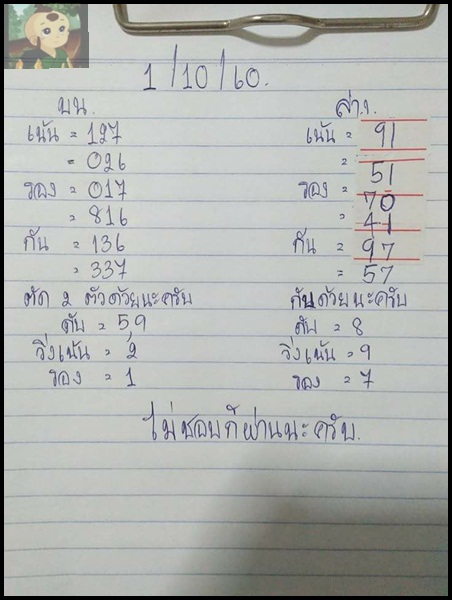 1/10/60.
บน.
เน้น = 127
= 026
รอง = 017
= 816
กัน = 136
= 337
ตัด 2 ตัวด้วยนะครับ
ดับ = 5,9
วิ่งเน้น = 2
รอง = 1
ล่าง.
เน้น = 91
= 51
รอง = 70
= 41
กัน = 97
= 57
กันด้วยนะครับ
ดับ = 8
วิ่งเน้น = 9
รอง = 7
ไม่ชอบก็ผ่านนะครับ.